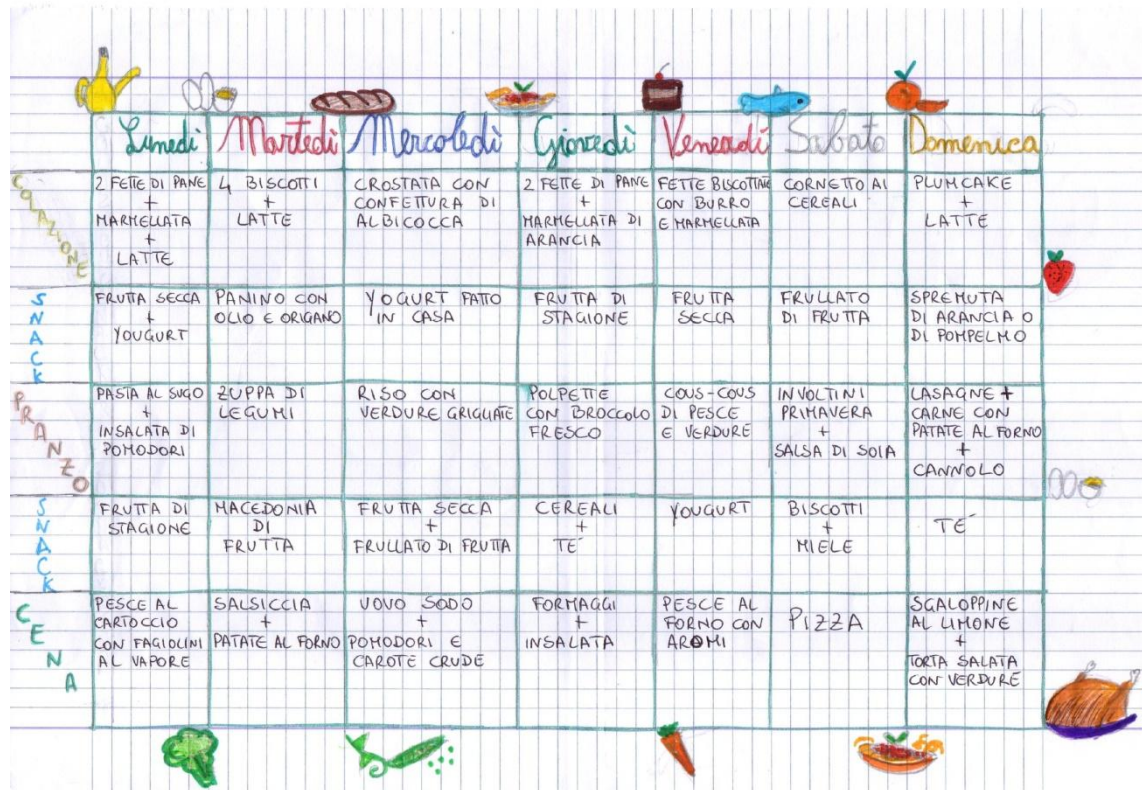 Lunedì Martedì Mercoledì Giovedì Venerdì Sabato Domenica
COLAZIONE
2 FETTE DI PANE
+
MARMELLATA
+
LATTE
4 BISCOTTI
+
LATTE
CROSTATA CON
CONFETTURA DI
ALBICOCCA
2 FETTE DI PANE
+
MARMELLATA DI
ARANCIA
FETTE BISCOTTATE
CON BURRO
E MARMELLATA
CORNETTO AI
CEREALI
PLUMCAKE
+
LATTE
SNACK
FRUTTA SECCA
+
YOUGURT
PANINO CON
OLIO E ORIGANO
YOGURT FATTO
IN CASA
FRUTTA DI
STAGIONE
FRUTTA
SECCA
FRULLATO
DI FRUTTA
SPREMUTA
DI ARANCIA O
DI POMPELMO
PRANZO
PASTA AL SUGO
+
INSALATA DI
POMODORI
ZUPPA DI
LEGUMI
RISO CON
VERDURE GRIGLIATE
POLPETTE
CON BROCCOLO
FRESCO
COUS-COUS
DI PESCE
E VERDURE
INVOLTINI
PRIMAVERA
+
SALSA DI SOIA
LASAGNE +
CARNE CON
PATATE AL FORNO
+
CANNOLO
SNACK
FRUTTA DI
STAGIONE
MACEDONIA
DI
FRUTTA
FRUTTA SECCA
+
FRULLATO DI FRUTTA
CEREALI
+
TE'
YOUGURT
BISCOTTI
+
MIELE
TE'
CENA
PESCE AL
CARTOCCIO
CON FAGIOLINI
AL VAPORE
SALSICCIA
+
PATATE AL FORNO
UOVO SODO
+
POMODORI E
CAROTE CRUDE
FORMAGGI
+
INSALATA
PESCE AL
FORNO CON
AROMI
PIZZA
SCALOPPINE
AL LIMONE
+
TORTA SALATA
CON VERDURE